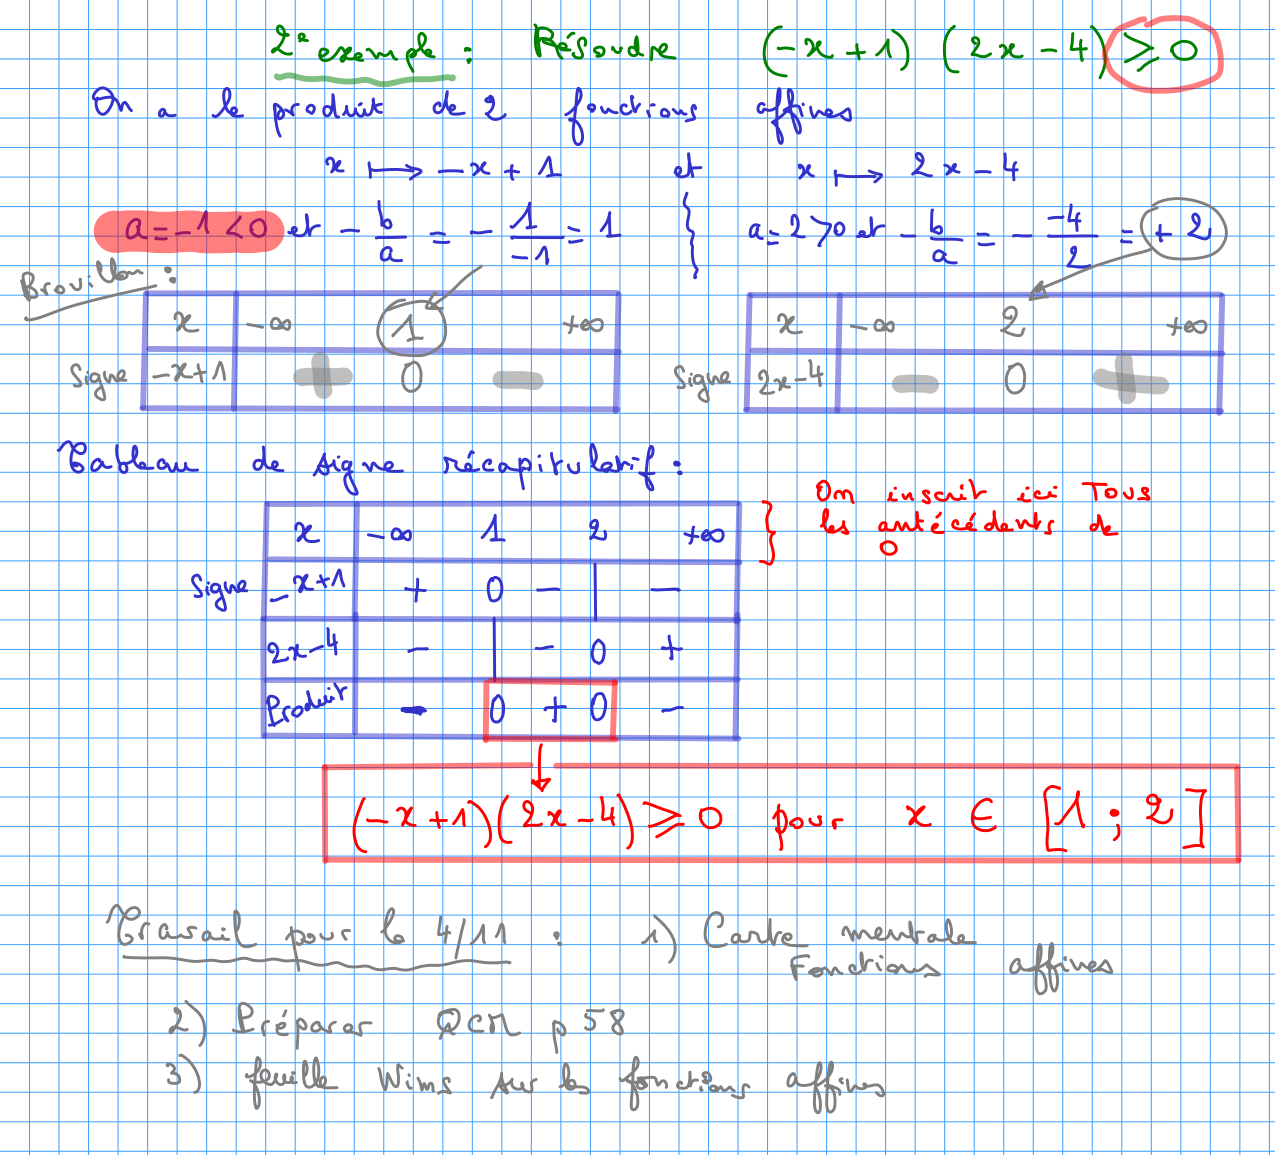 2e exemple : Résoudre (-x+1) (2x-4) ⩾ 0
On a le produit de 2 fonctions affines
x ⟼ -x+1 et x ⟼ 2x-4
a=-1<0 et -b/a = -1/-1 = 1 a=2>0 et -b/a = - -4/2 = +2
Brouillon :
x -∞ 1 +∞
Signe -x+1 + 0 -
x -∞ 2 +∞
Signe 2x-4 - 0 +
Tableau de signe récapitulatif :
x -∞ 1 2 +∞
On inscrit ici TOUS
les antécédents de
0
Signe -x+1 + 0 - | -
2x-4 - | - 0 +
Produit - 0 + 0 -
(-x+1)(2x-4) ⩾ 0 pour x ∈ [1 ; 2]
Travail pour le 4/11 : 1) Carte mentale
Fonctions affines
2) Préparer QCM p 58
3) feuille Wims sur les fonctions affines